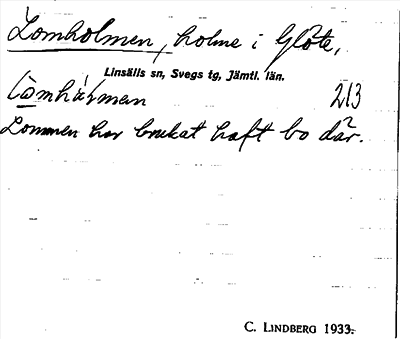 Lomholmen, holme i Glöte,
Linsälls sn, Svegs tg, Jämtl. län.
213
Lommen har brukat haft bo där.
C. LINDBERG 1933.